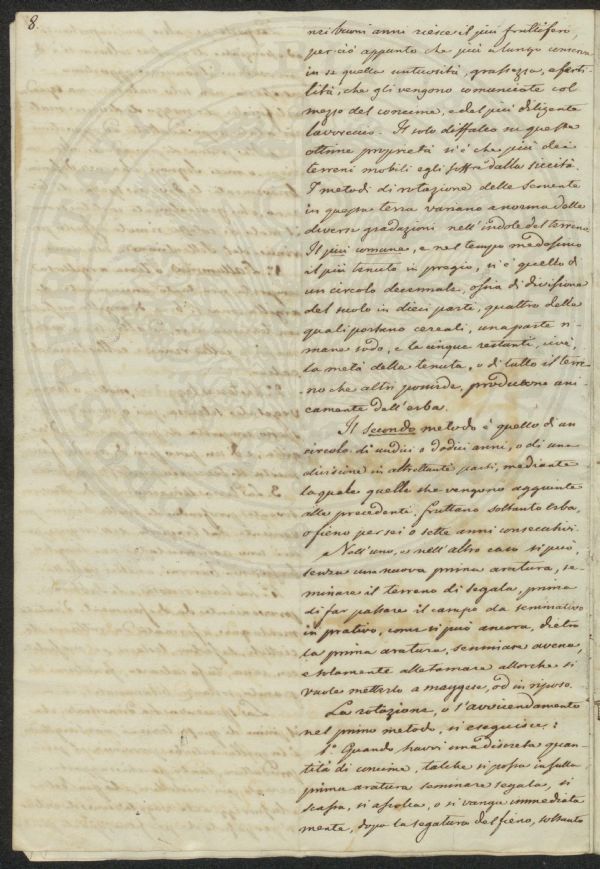 8.
nei buoni anni riesce il più fruttifero,
per ciò appunto che più a lungo conserva
in se quella untuosità, grassezza, e ferti-
lità, che gli vengono comunicate col
mezzo del concime, e del più diligente
lavoreccio. Il solo diffalco su queste
ottime proprietà si è che più dei
terreni mobili egli soffre dalla siccità.
I metodi di rotazione delle semente
in questa terra variano a norma delle
diverse gradazioni nell'indole del terreno
Il più comune, e nel tempo medesimo
il più tenuto in pregio, si è quello di
un circolo decennale, ossia di divisione
del suolo in dieci parti, quattro delle
quali portano cereali, una parte ri-
mane sodo, e le cinque restanti, cioè,
la metà della tenuta, o di tutto il terre-
no che altri possiede, producono uni-
camente dell'erba.
Il secondo metodo è quello di un
circolo di undici o dodici anni, o di una
divisione in altrettante parti, mediante
la quale quelle che vengono aggiunte
alle precedenti, fruttano soltanto erba,
o fieno per sei o sette anni consecutivi.
Nell'uno, e nell'altro caso si può,
senza una nuova prima aratura, se-
minare il terreno di segala, prima
di far passare il campo da seminativo
in prativo, come si può ancora, dietro
la prima aratura, seminare avena,
e solamente alletamare allorche si
vuole metterlo a maggese, od in riposo.
La rotazione, o l'avvicendamento
nel primo metodo, si eseguisce:
1° Quando havvi una discreta quan-
tità di concime, talche si possa in sulla
prima aratura seminare segala, si
scassa, si a o si vanga immediata
mente, dopo la segatura del fieno, soltanto